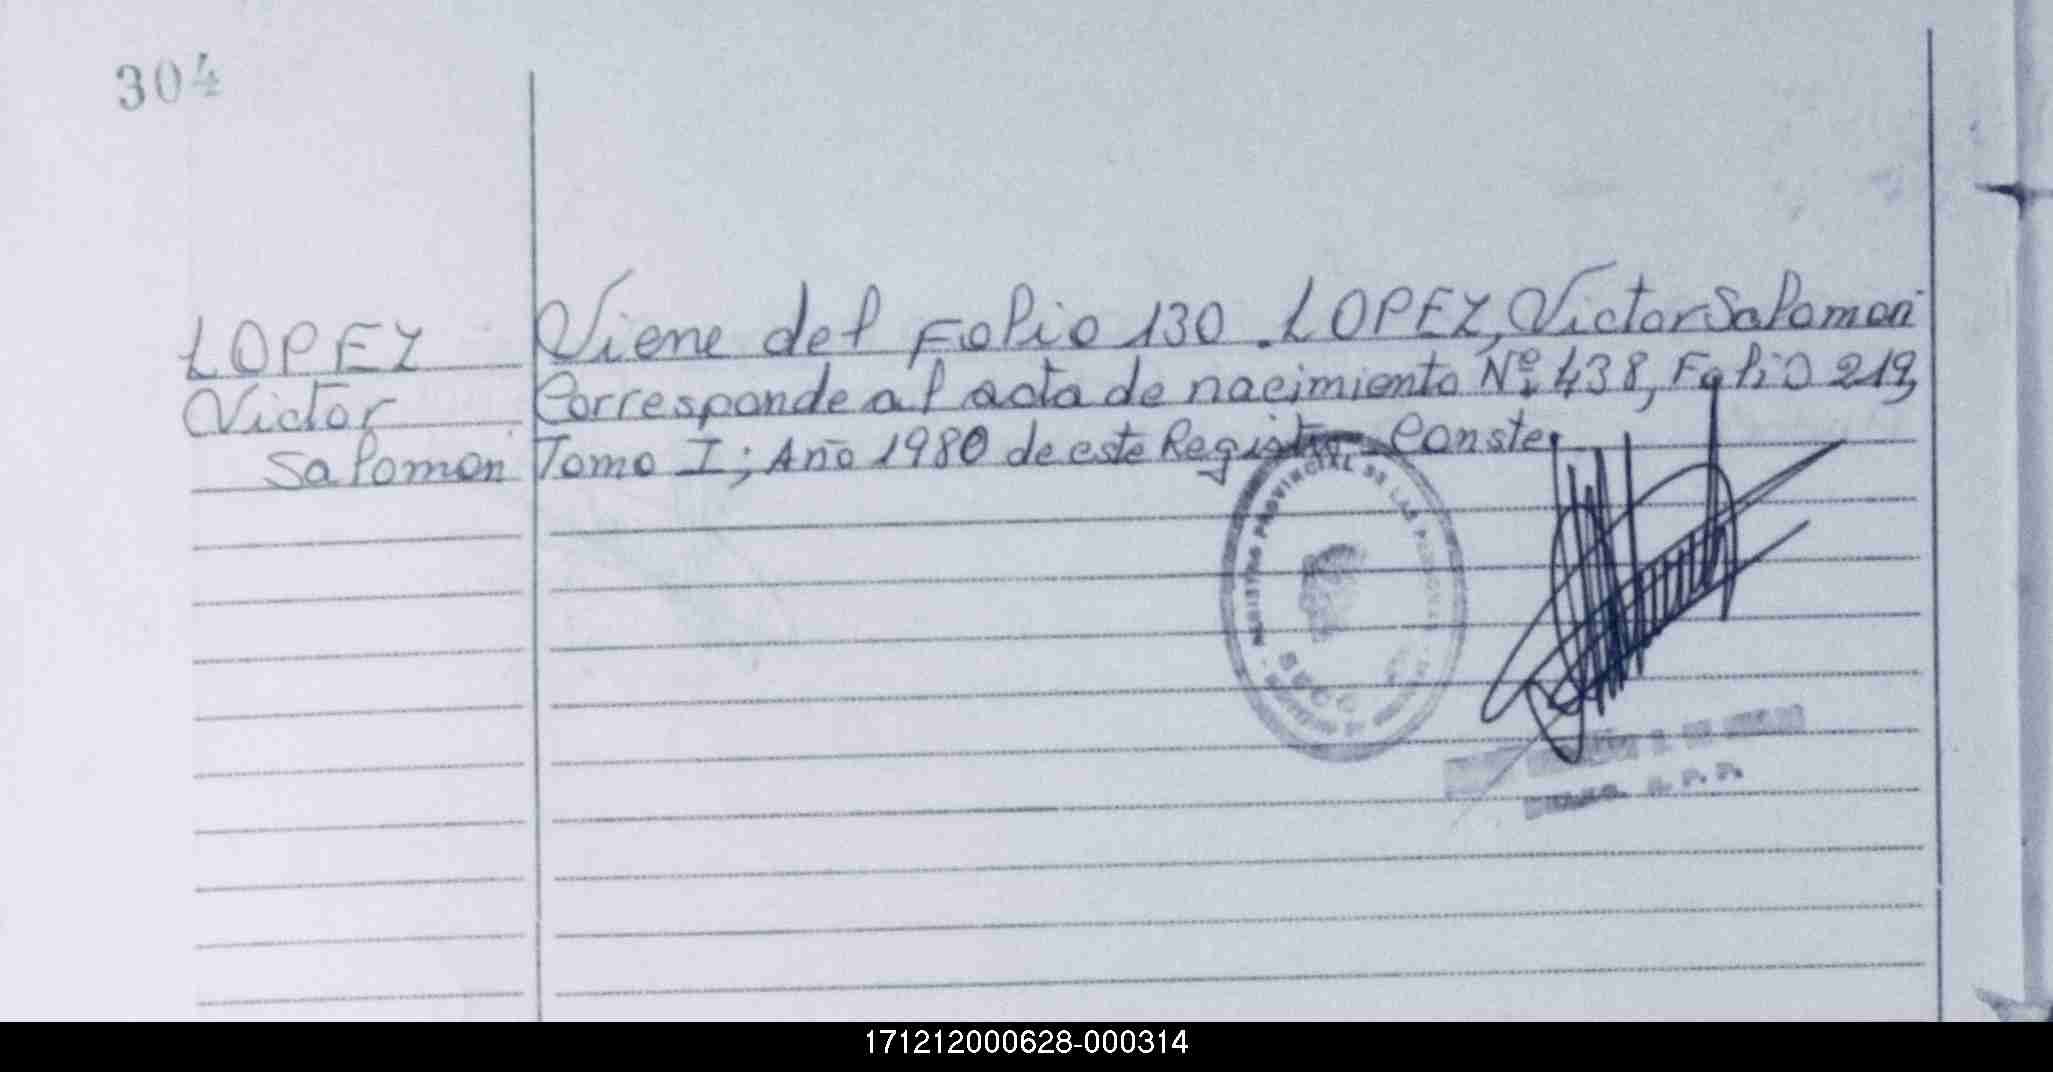 304
LOPEZ
Victor
Salomon
Viene del Folio 130. LOPEZ, Victor Salomon
Corresponde al acta de nacimiento Nº 438, Folio 219,
Tomo I; Año 1980 de este Registro Conste.
REGISTRO PROVINCIAL DE LAS PERSONAS
171212000628-000314